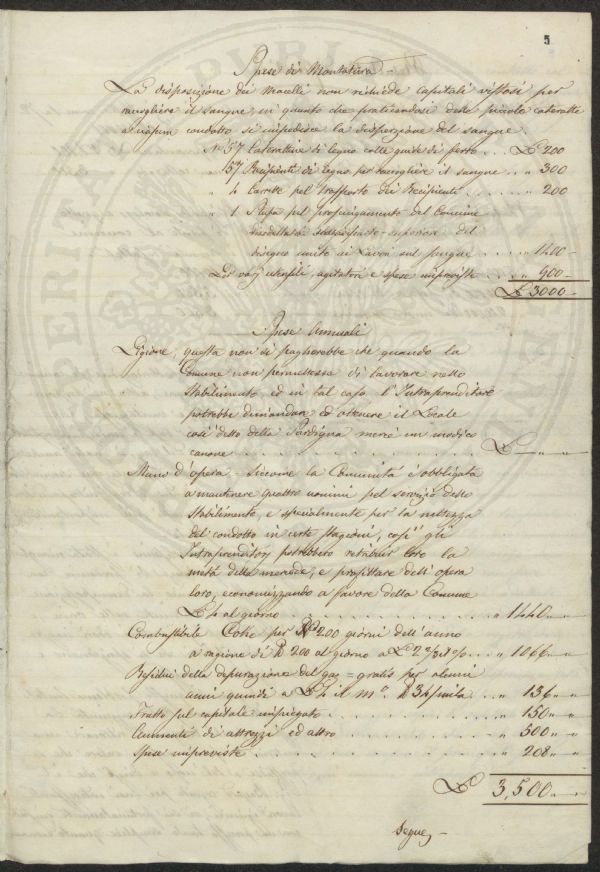 5
Spese di Montatura
La disposizione dei Macelli non richiede capitali vistosi per
raccogliere il sangue, in quanto che praticandosi delle piccole cateratte
a ciascun condotto si impedisce la dispersione del sangue.
N.o 57 Caterattine di legno colle guide di ferro . . . £ 200
" 57 Recipienti di legno per raccogliere il sangue . . . " 300
" 4 Carrette pel trasporto dei Recipienti . . . " 200
" 1 Stufa pel prosciugamento del Concime
del
disegno unito ai Lavori sul sangue . . . " 1400
Per varj utensili, agitatori e spese impreviste . . . " 900
£ 3000
Spese Annuali
Pigione, questa non si pagherebbe che quando la
Comune non permettesse di lavorare nello
Stabilimento ed in tal caso l'Intraprenditore
potrebbe dimandare ed ottenere il Locale
così detto della Pardigna mercè un modico
canone . . . £ — " —
Mano d'opera - Siccome la Comunità è obbligata
a mantenere quattro uomini pel servizio dello
Stabilimento, e specialmente per la nettezza
del condotto in certe stagioni, così gli
Intraprenditori potrebbero retribuir loro la
metà della mercede, e profittare dell'opera
loro, economizzando a favore della Comune
£ 4 al giorno . . . " 1440 " "
Combustibile Coke per 200 giorni dell'anno
a ragione di 200 al giorno a £ . . . " 1066 " "
Residui della depurazione del gas = gratis per alcuni
anni quindi a £ 4 il m.o 34/mila . . . " 136 " "
Frutto sul capitale impiegato . . . " 150 " "
Aumenti di attrezzi ed altro . . . " 500 " "
Spese impreviste . . . " 208 " "
£ 3,500 " "
Segue